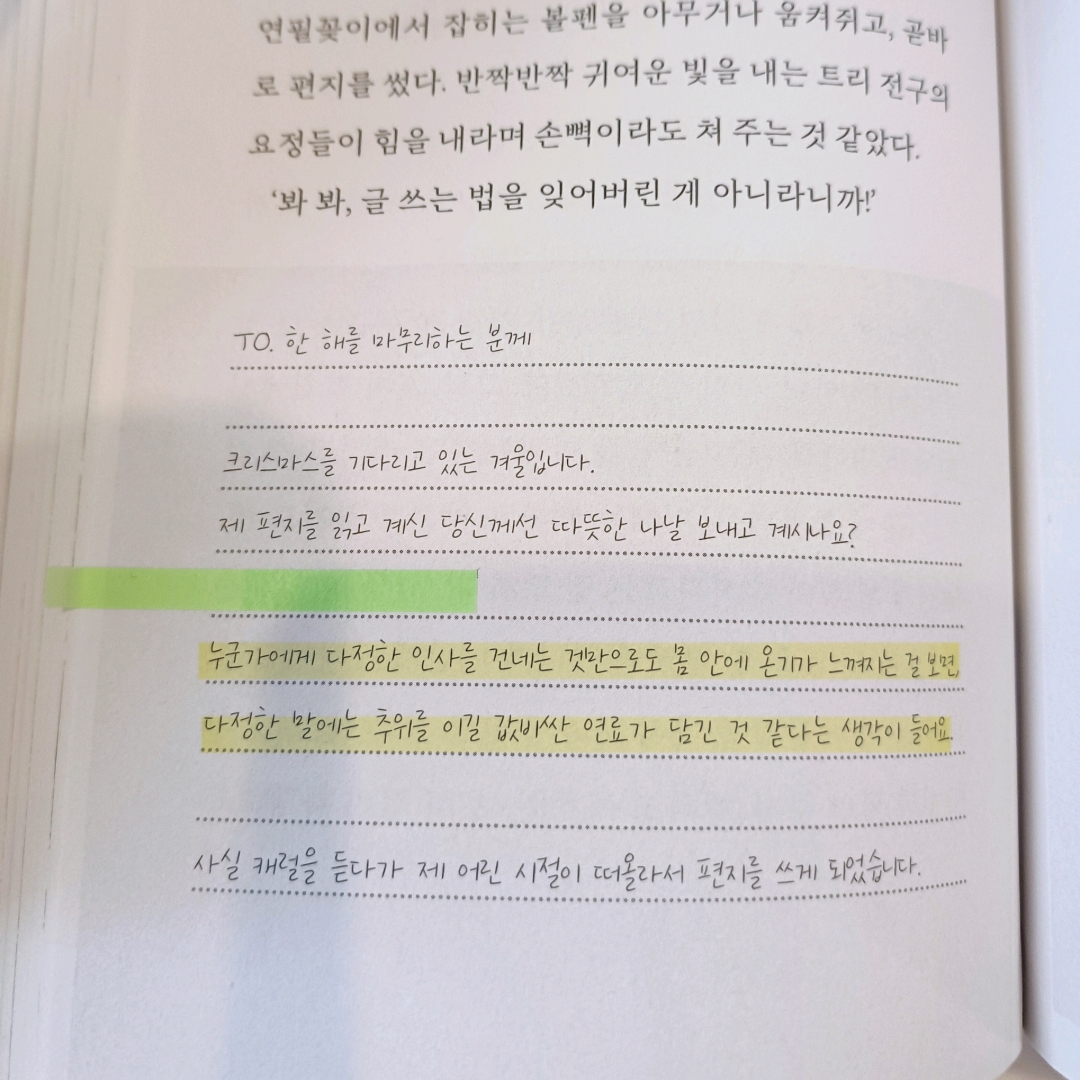 연필꽂이에서 잡히는 볼펜을 아무거나 움켜쥐고, 곧바
로 편지를 썼다. 반짝반짝 귀여운 빛을 내는 트리 전구의
요정들이 힘을 내라며 손뼉이라도 쳐 주는 것 같았다.
‘봐 봐, 글 쓰는 법을 잊어버린 게 아니라니까!’
TO. 한 해를 마무리하는 분께
크리스마스를 기다리고 있는 겨울입니다.
제 편지를 읽고 계신 당신께선 따뜻한 나날 보내고 계시나요?
누군가에게 다정한 인사를 건네는 것만으로도 몸 안에 온기가 느껴지는 걸 보면,
다정한 말에는 추위를 이길 값비싼 연료가 담긴 것 같다는 생각이 들어요.
사실 캐럴을 듣다가 제 어린 시절이 떠올라서 편지를 쓰게 되었습니다.